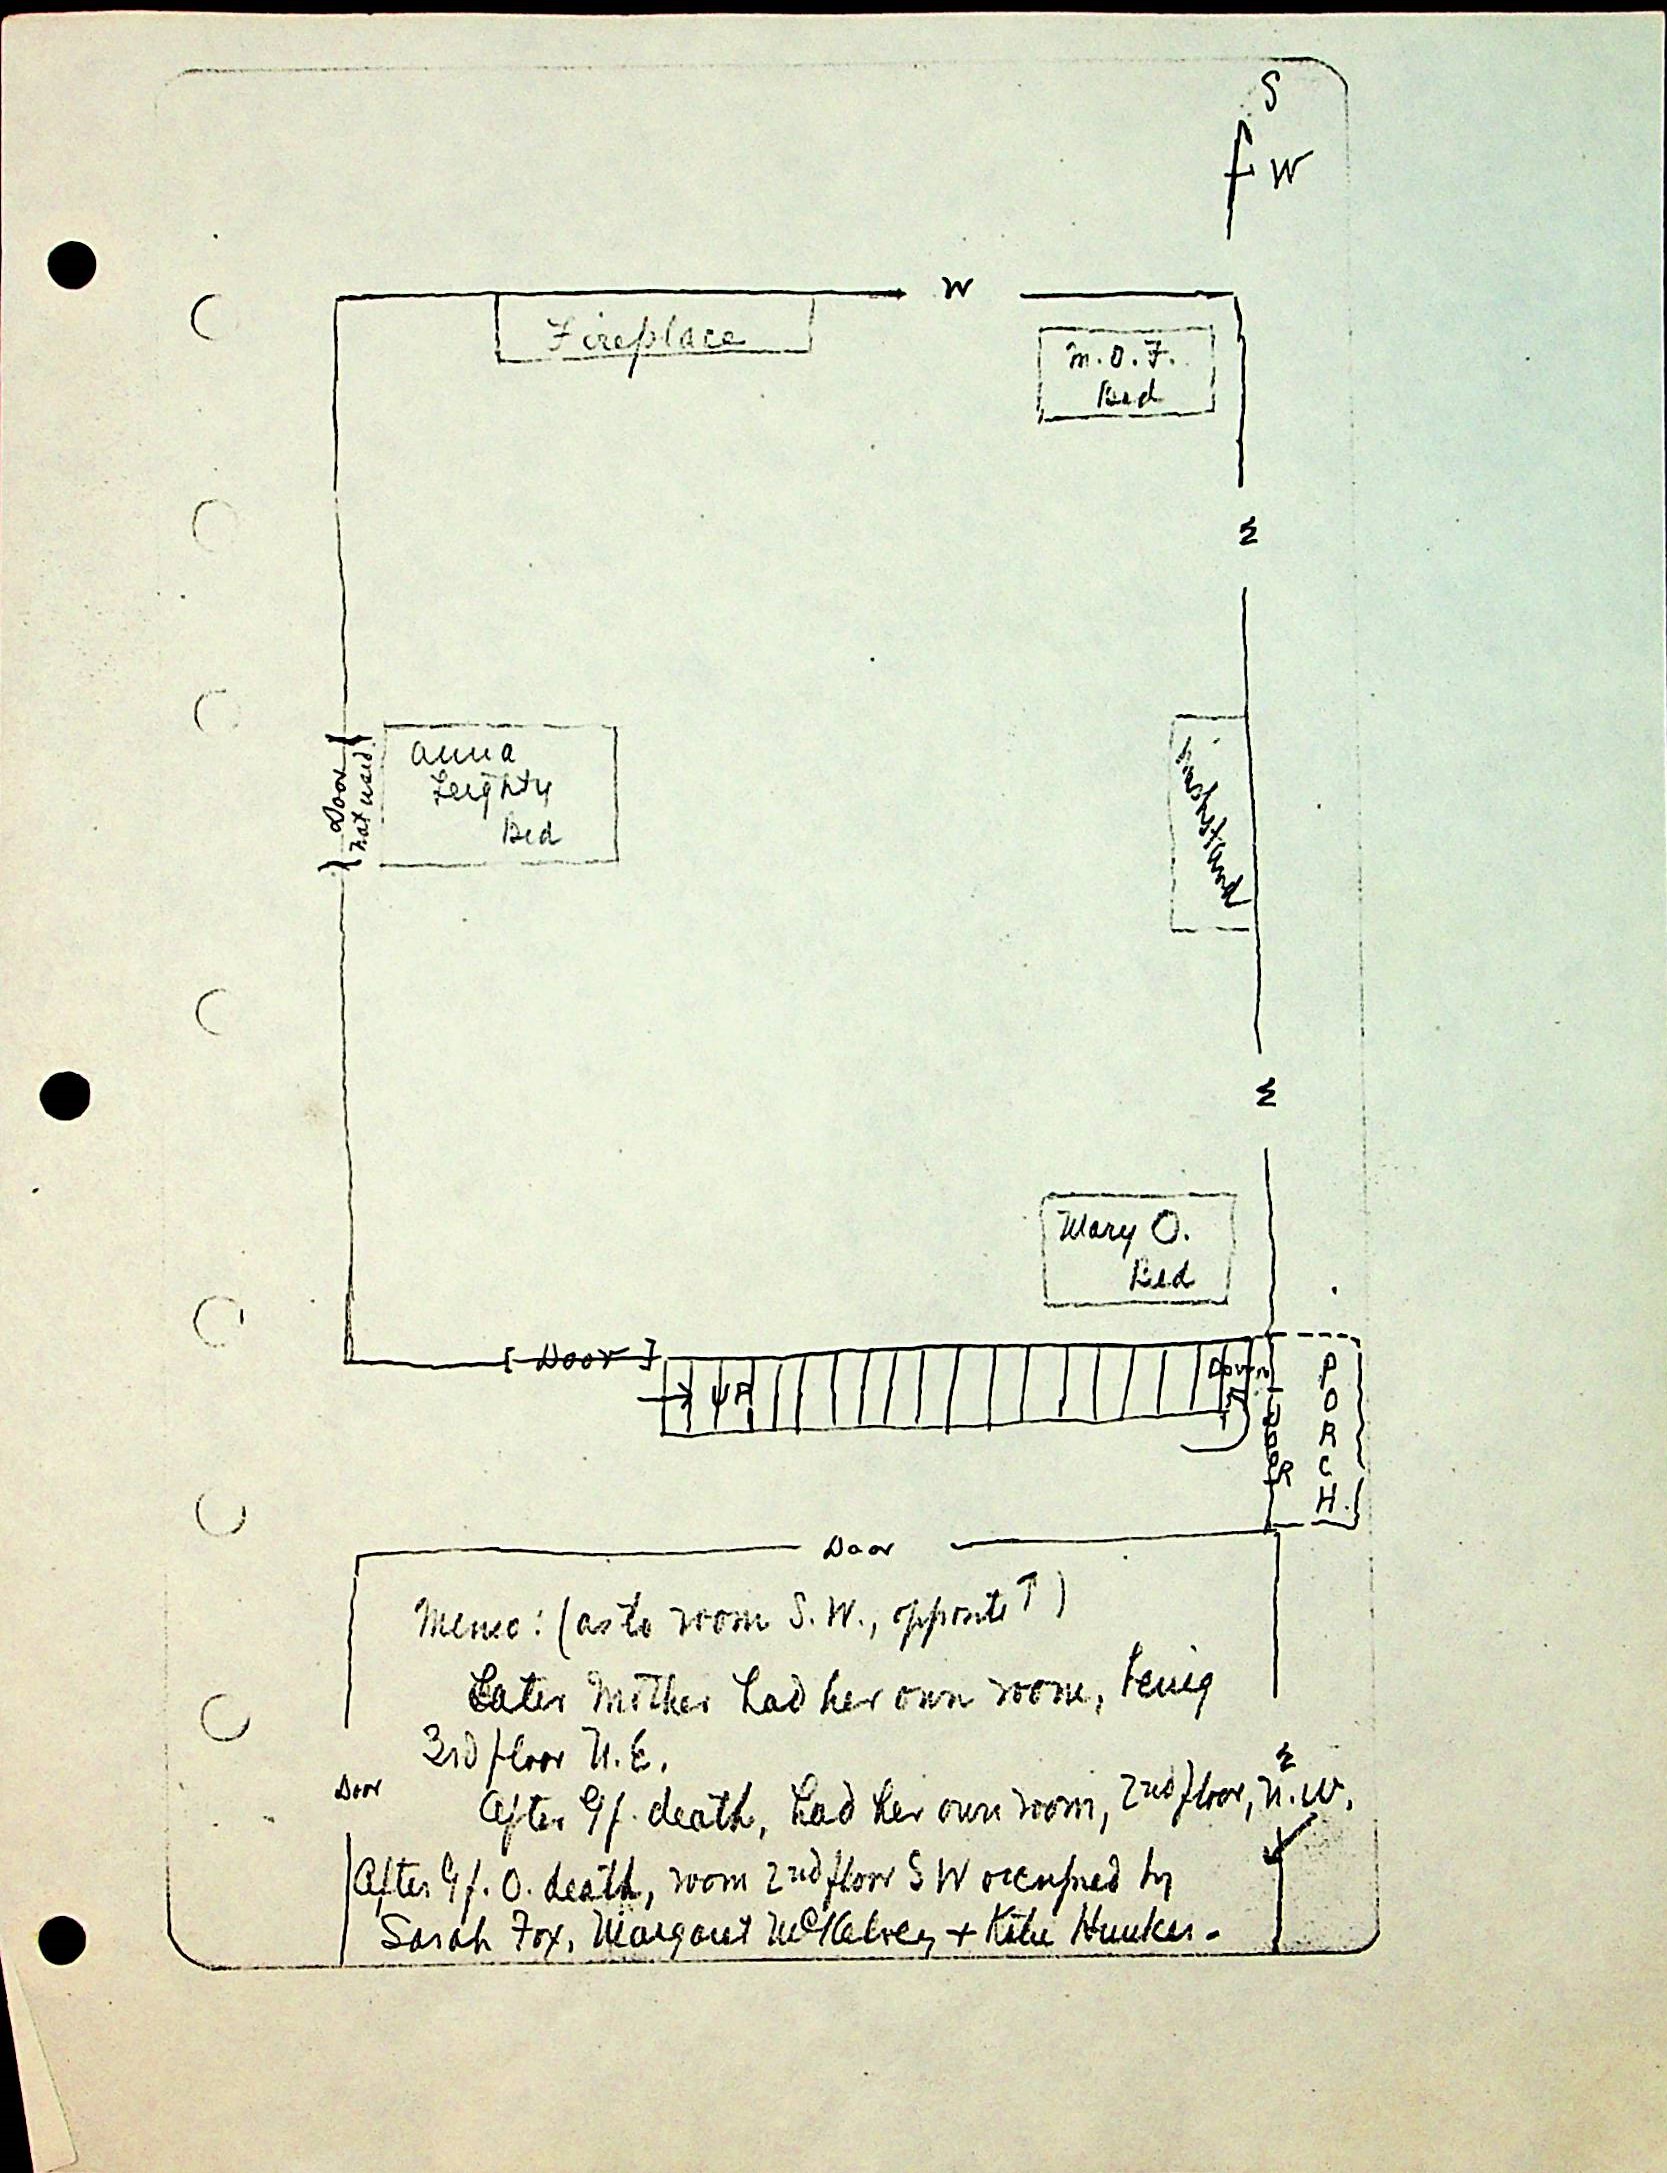 S
W
W
Fireplace
M.O.F.
Bed
W
Anna
Leighty
Bed
Door
not used
Washstand
W
Mary O.
Bed
[ Door ]
UP
Down
DOOR
PORCH
Door
Memo: (as to room S.W., opposite ↑)
Later Mother had her own room, being
3rd floor N.E.
W
Door
After Gf. death, had her own room, 2nd floor, N.W.
After Gf. O. death, room 2nd floor SW occupied by
Sarah Fox, Margaret McKelvey + Katie Hunker.